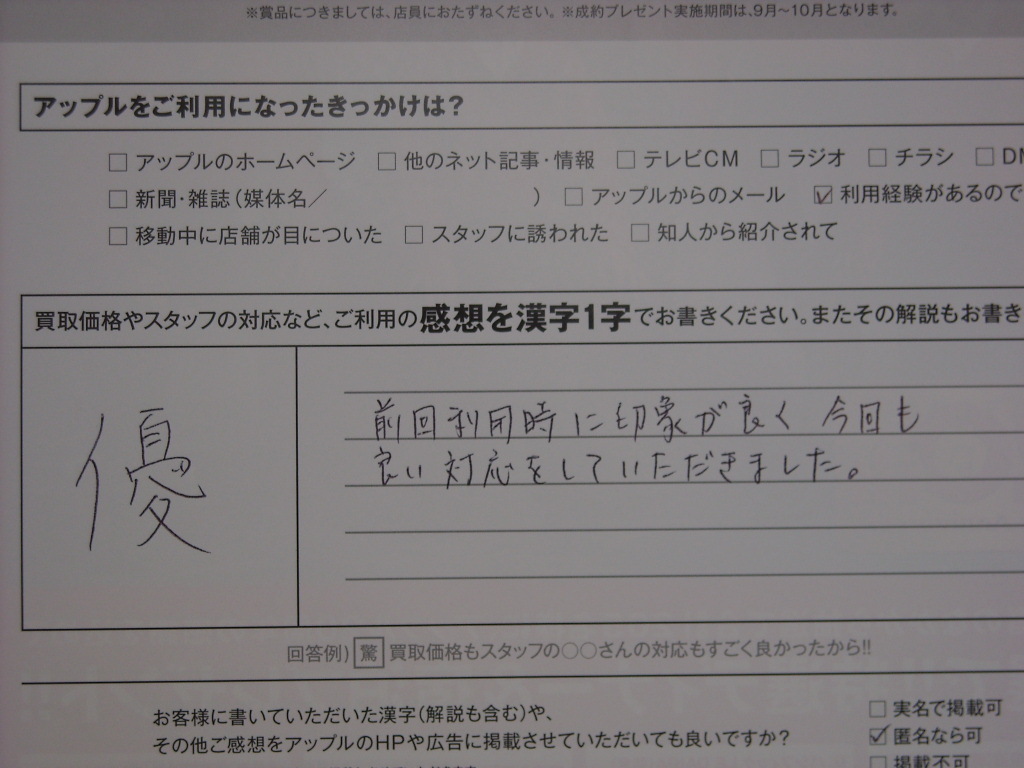 ※賞品につきましては、店員におたずねください。※成約プレゼント実施期間は、9月〜10月となります。
アップルをご利用になったきっかけは？
□ アップルのホームページ □ 他のネット記事・情報 □ テレビCM □ ラジオ □ チラシ □ DM
□ 新聞・雑誌（媒体名／ ） □ アップルからのメール ☑ 利用経験があるので
□ 移動中に店舗が目についた □ スタッフに誘われた □ 知人から紹介されて
買取価格やスタッフの対応など、ご利用の感想を漢字1字でお書きください。またその解説もお書き
優
前回利用時に印象が良く 今回も
良い対応をしていただきました。
回答例) 驚 買取価格もスタッフの○○さんの対応もすごく良かったから!!
お客様に書いていただいた漢字（解説も含む）や、
その他ご感想をアップルのHPや広告に掲載させていただいても良いですか？
□ 実名で掲載可
☑ 匿名なら可
□ 掲載不可